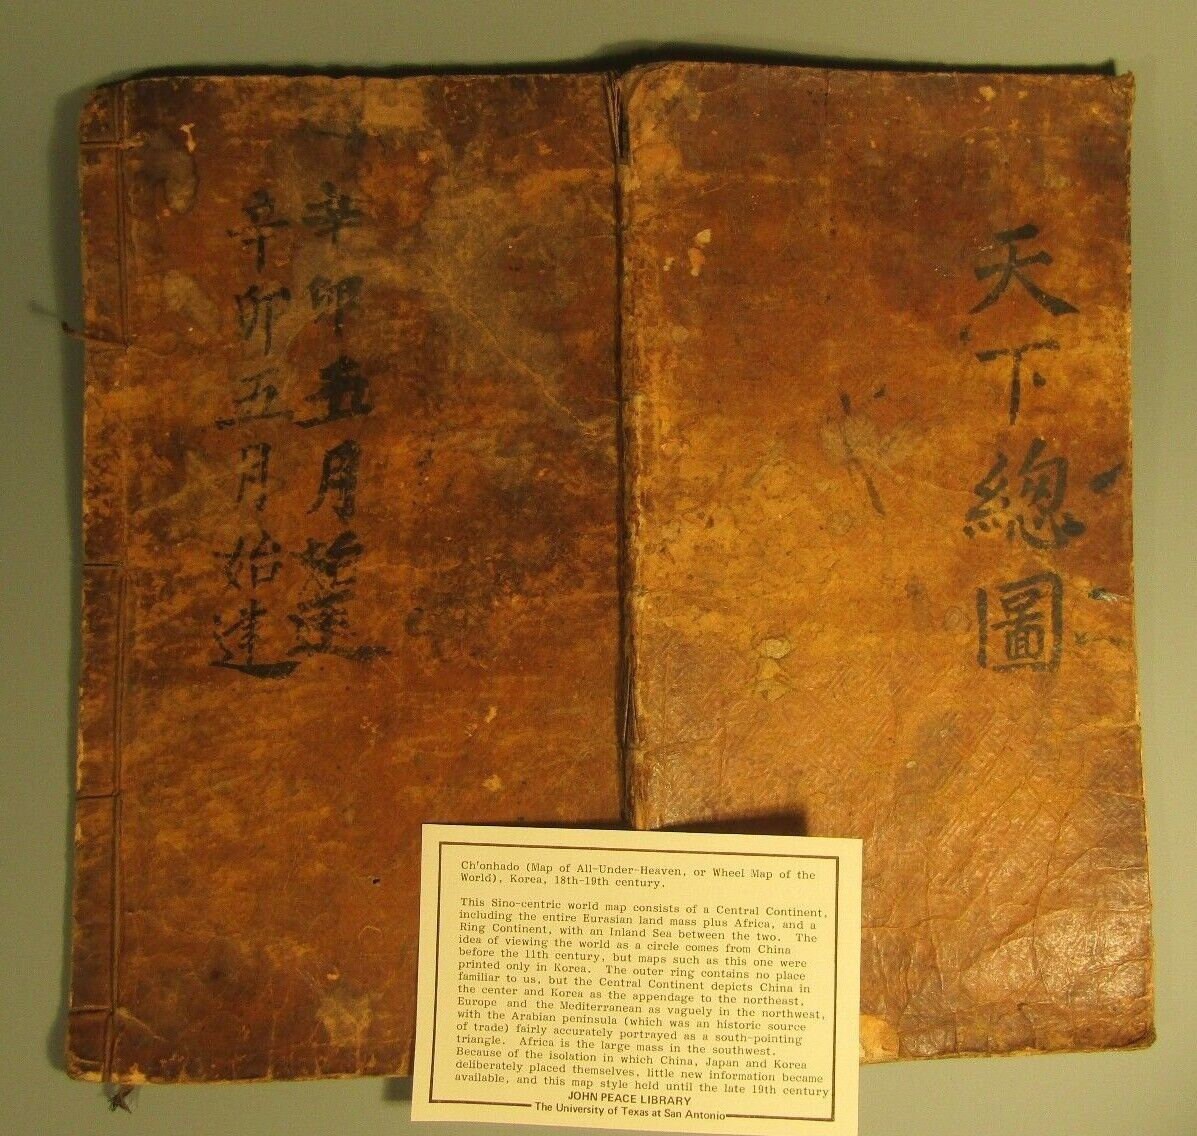 天下總圖
辛卯五月始達
辛卯五月始達
Ch'onhado (Map of All-Under-Heaven, or Wheel Map of the
World), Korea, 18th-19th century.
This Sino-centric world map consists of a Central Continent,
including the entire Eurasian land mass plus Africa, and a
Ring Continent, with an Inland Sea between the two. The
idea of viewing the world as a circle comes from China
before the 11th century, but maps such as this one were
printed only in Korea. The outer ring contains no place
familiar to us, but the Central Continent depicts China in
the center and Korea as the appendage to the northeast,
Europe and the Mediterranean as vaguely in the northwest,
with the Arabian peninsula (which was an historic source
of trade) fairly accurately portrayed as a south-pointing
triangle. Africa is the large mass in the southwest.
Because of the isolation in which China, Japan and Korea
deliberately placed themselves, little new information became
available, and this map style held until the late 19th century
JOHN PEACE LIBRARY
The University of Texas at San Antonio